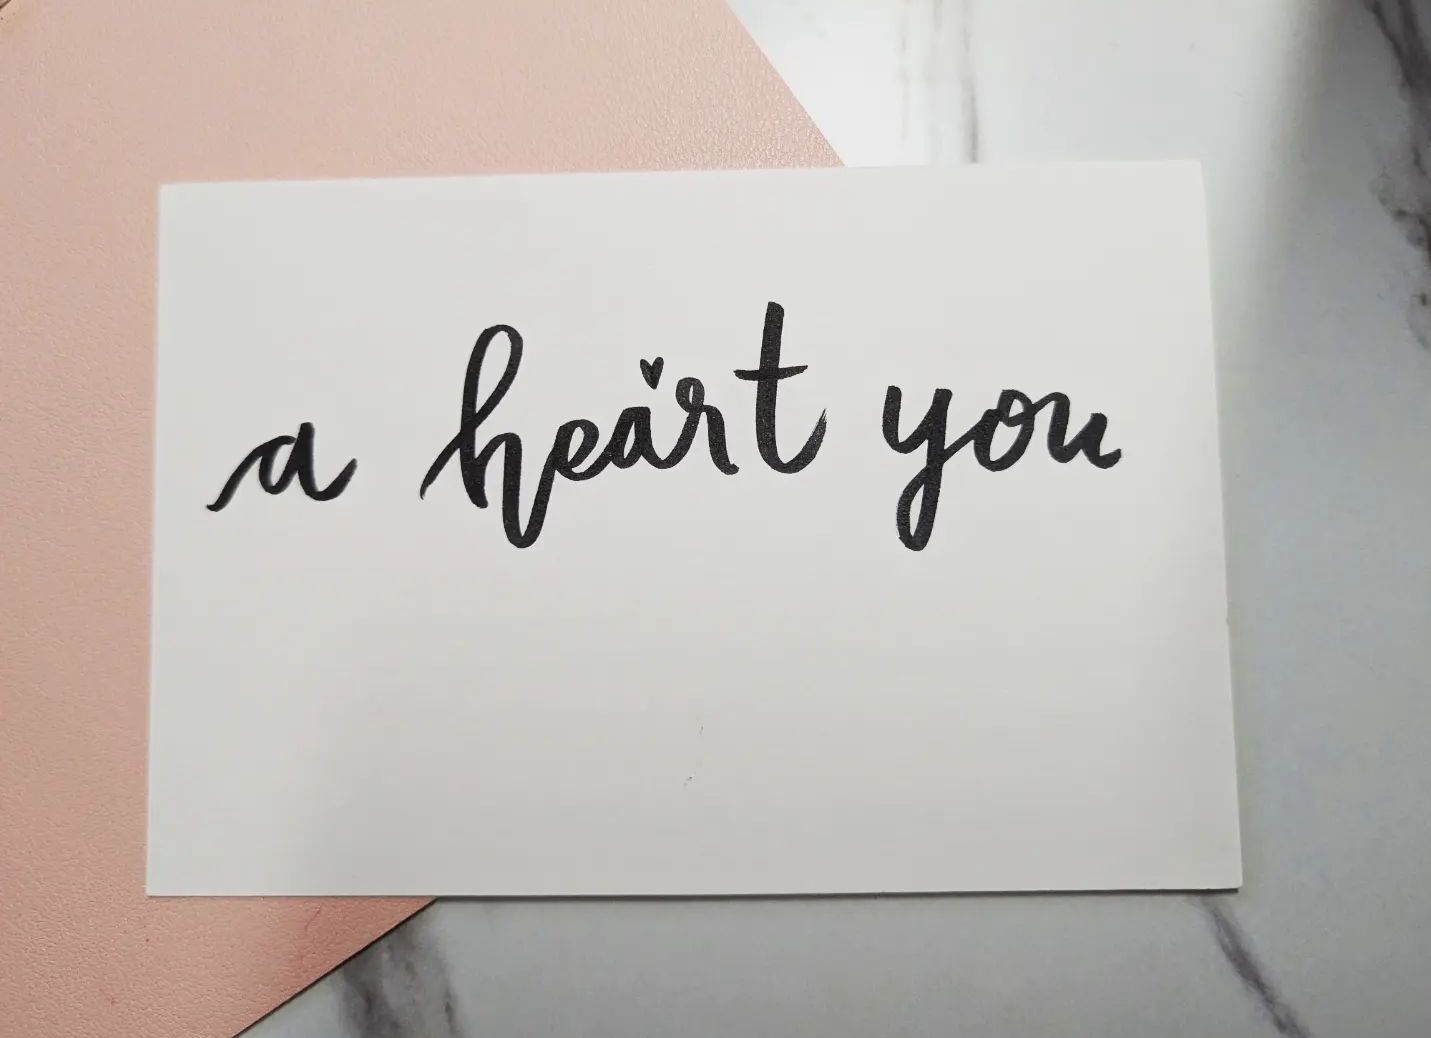 a heart you